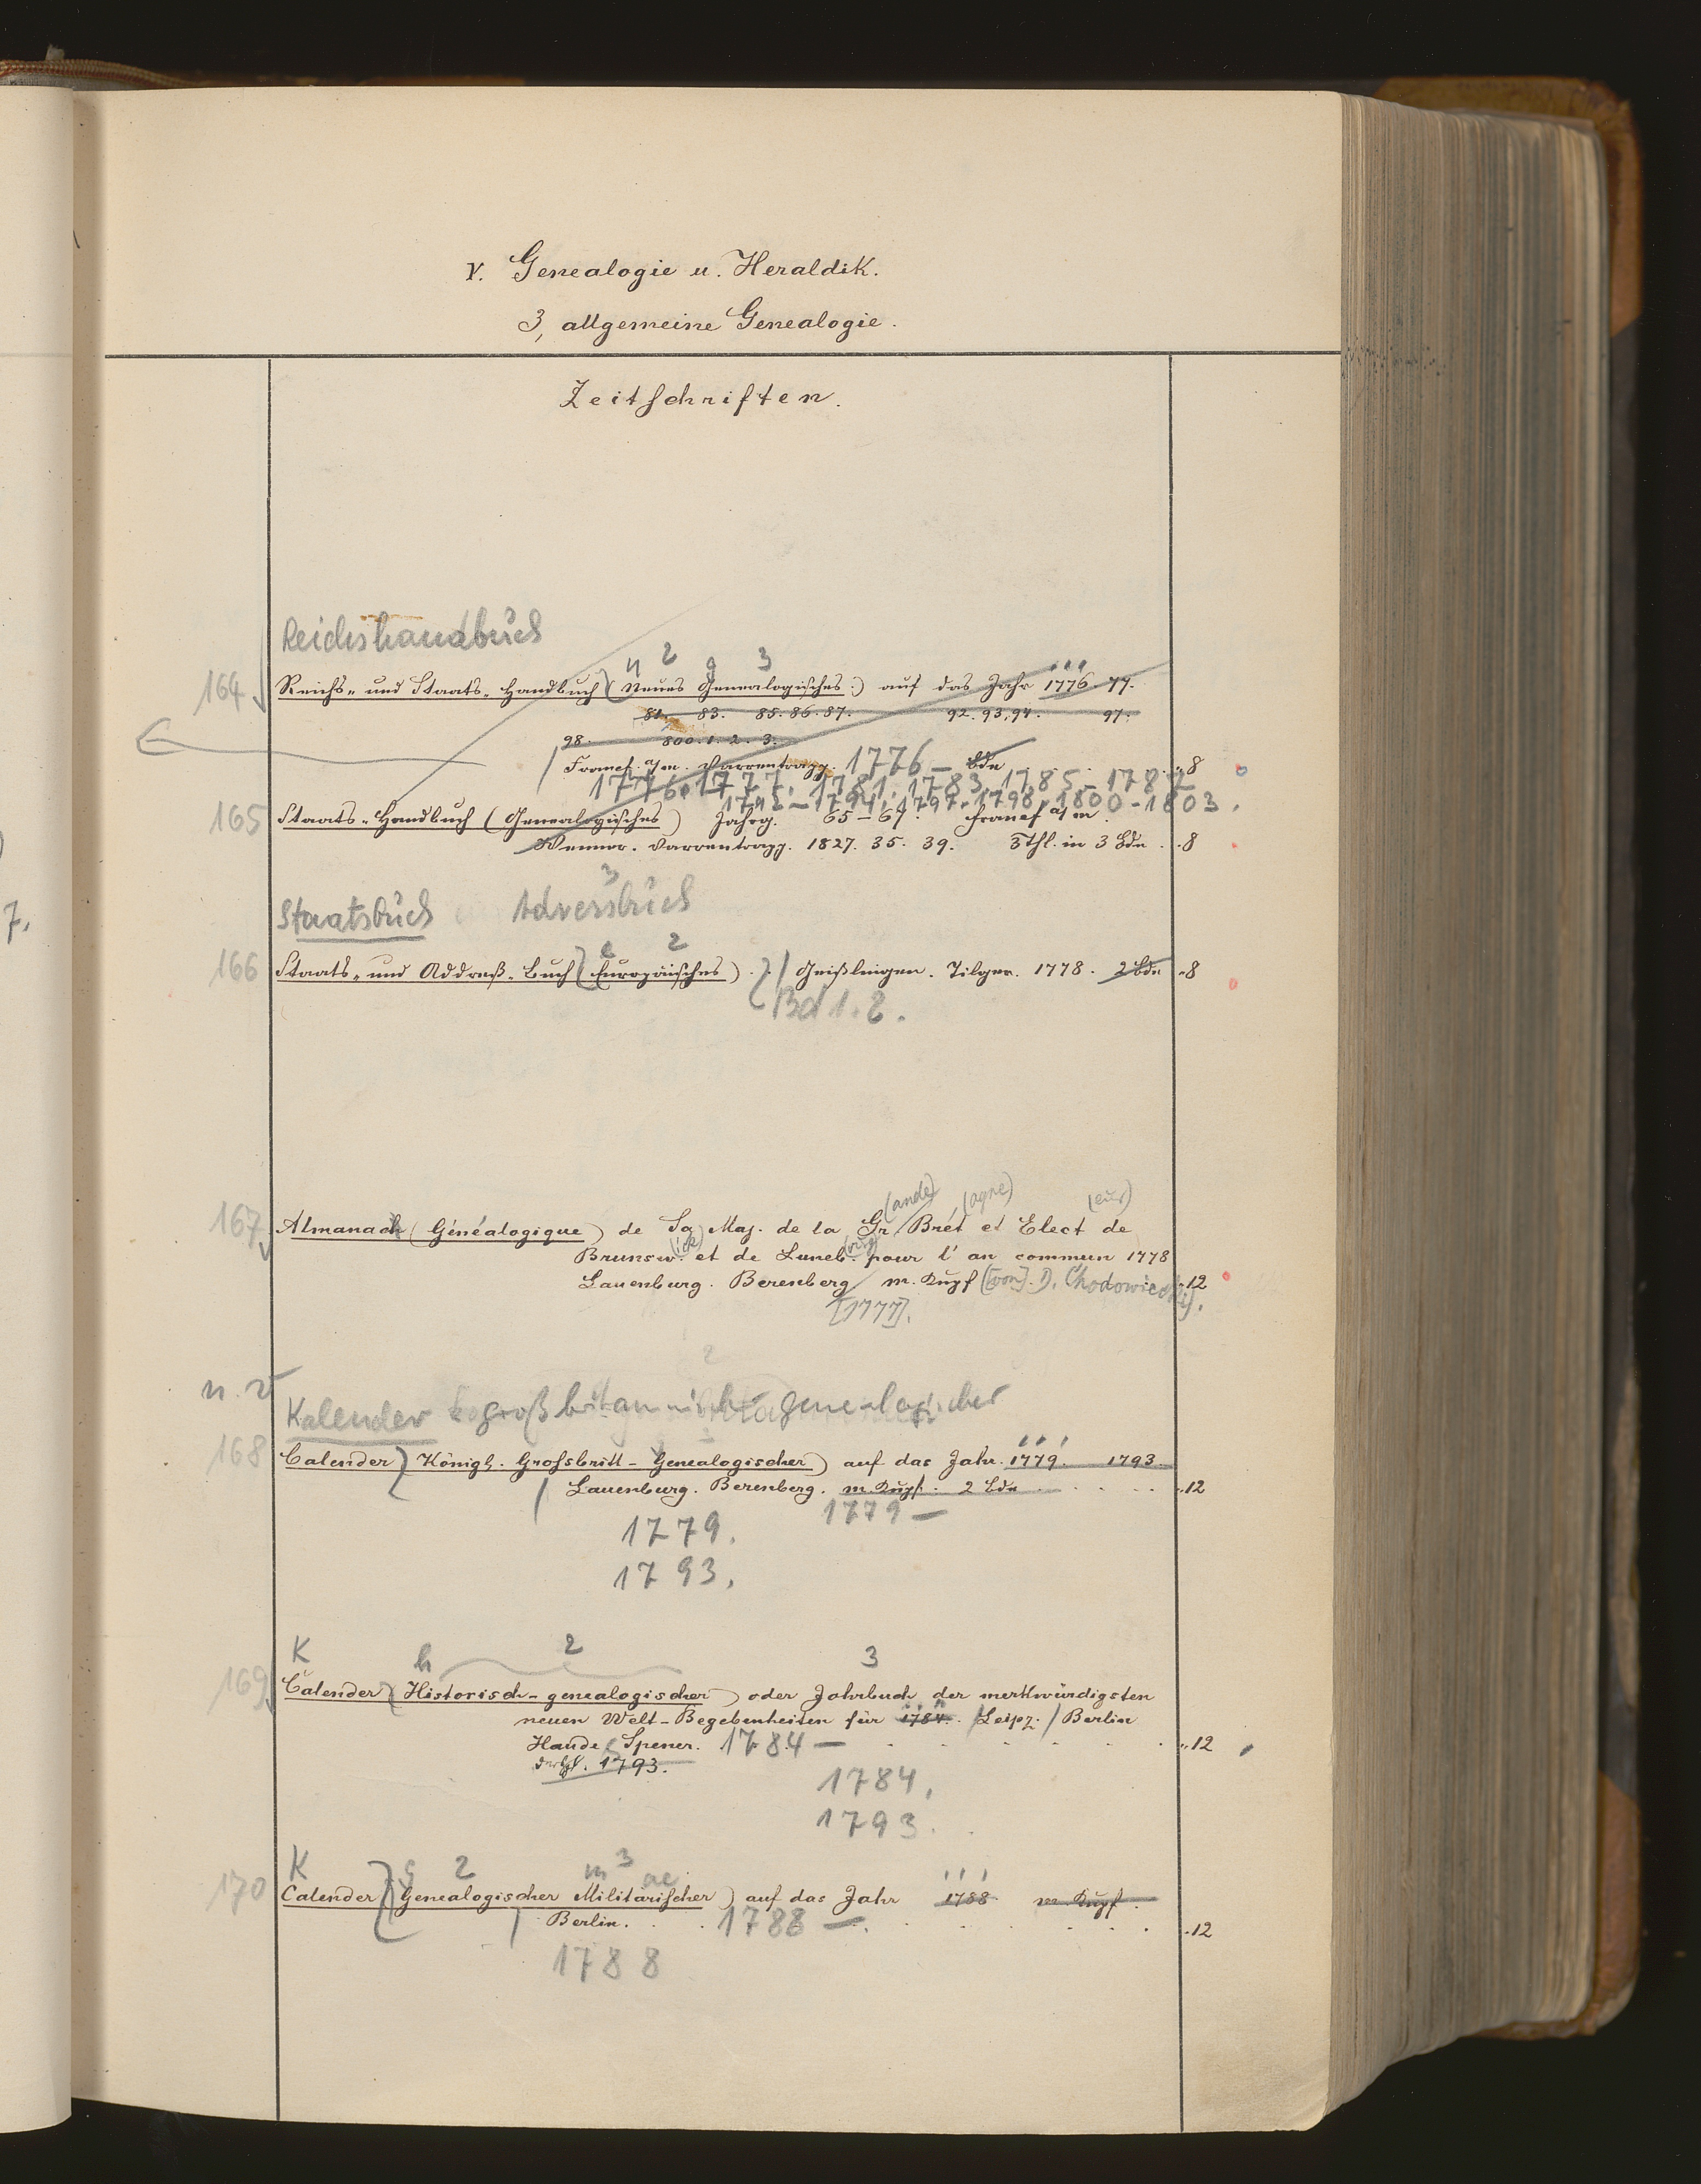 V. Genealogie u. Heraldik.
3, allgemeine Genealogie.
Zeitschriften.
Reichshandbuch
n 2 g 3
164 Reichs- und Staats-Handbuch (Neues Genealogisches:) auf das Jahr 1776. 77.
81. 83. 85. 86. 87. 92. 93. 94. 97.
98. 800. 1. 2. 3.
Francf. a/m. Varrentrapp. 1776 — Bde "8
1776. 1777. 1781. 1783. 1785-1787
1792-1794. 1797. 1798. 1800-1803.
165 Staats-Handbuch (Genealogisches) Jahrg. 65-67. Francf a/m.
Wenner. Varrentrapp. 1827. 35. 39. 3 Thl. in 3 Bdn. "8
3
Staatsbuch Adressbuch
e 2
166 Staats- und Addreß-Buch (Europäisches). Geißlingen. Tilger. 1778. 2 Bde "8
Bd 1. 2.
(ande) (agne) (eur)
167 Almanach (Généalogique) de Sa Maj. de la Gr Brét et Elect de
Brunsw.(ick) et de Luneb.(ourg) pour l'an commun 1778
Lauenburg. Berenberg m. Kupf ([von]. D. Chodowiecki). "12
[1777].
2
n. v
Kalender großbritannisch-genealogischer
168 Calender (Königl. Grossbritt-Genealogischer) auf das Jahr. 1779. 1793.
Lauenburg. Berenberg. m. Kupf. 2 Bde "12
1779 —
1779.
1793.
K h 2 3
169 Calender (Historisch-genealogischer) oder Jahrbuch der merkwürdigsten
neuen Welt-Begebenheiten für 1784. Leipz. / Berlin
Haude & Spener. 1784 — "12
1793.
1784.
1793.
K g 2 m 3 ae
170 Calender (Genealogischer Militärischer) auf das Jahr 1788 m Kupf.
Berlin. 1788 —. "12
1788
7.